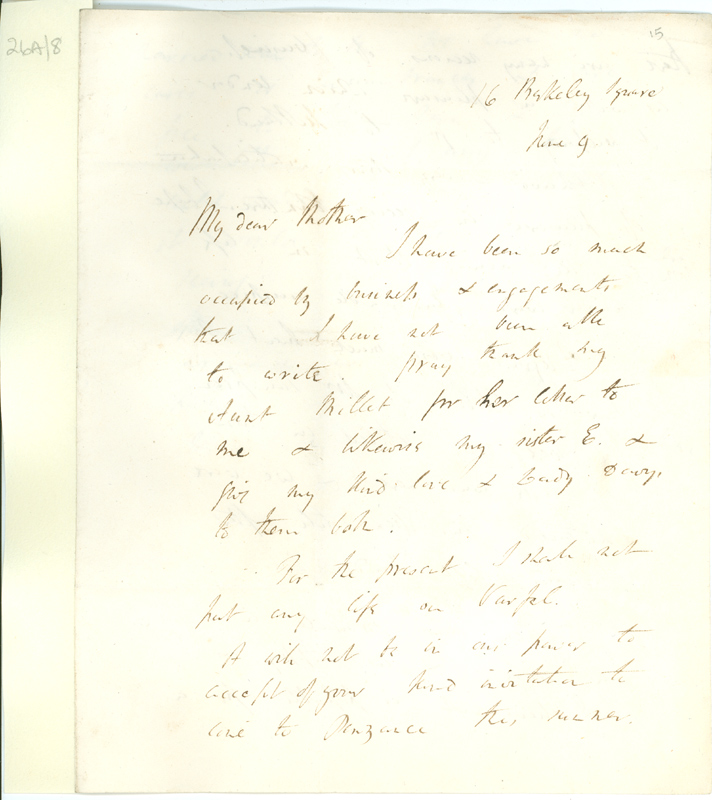 26A/8
15
16 Berkeley Square
June 9
My dear Mother
I have been so much
occupied by business & engagements
that I have not been able
to write. pray thank my
Aunt Millet for her letter to
me & likewise my sister E. &
give my kind love & Lady Davys
to them both.
For the present I shall not
put any life on Varfel.
It will not be in our power to
accept of your kind invitation to
come to Penzance this summer.